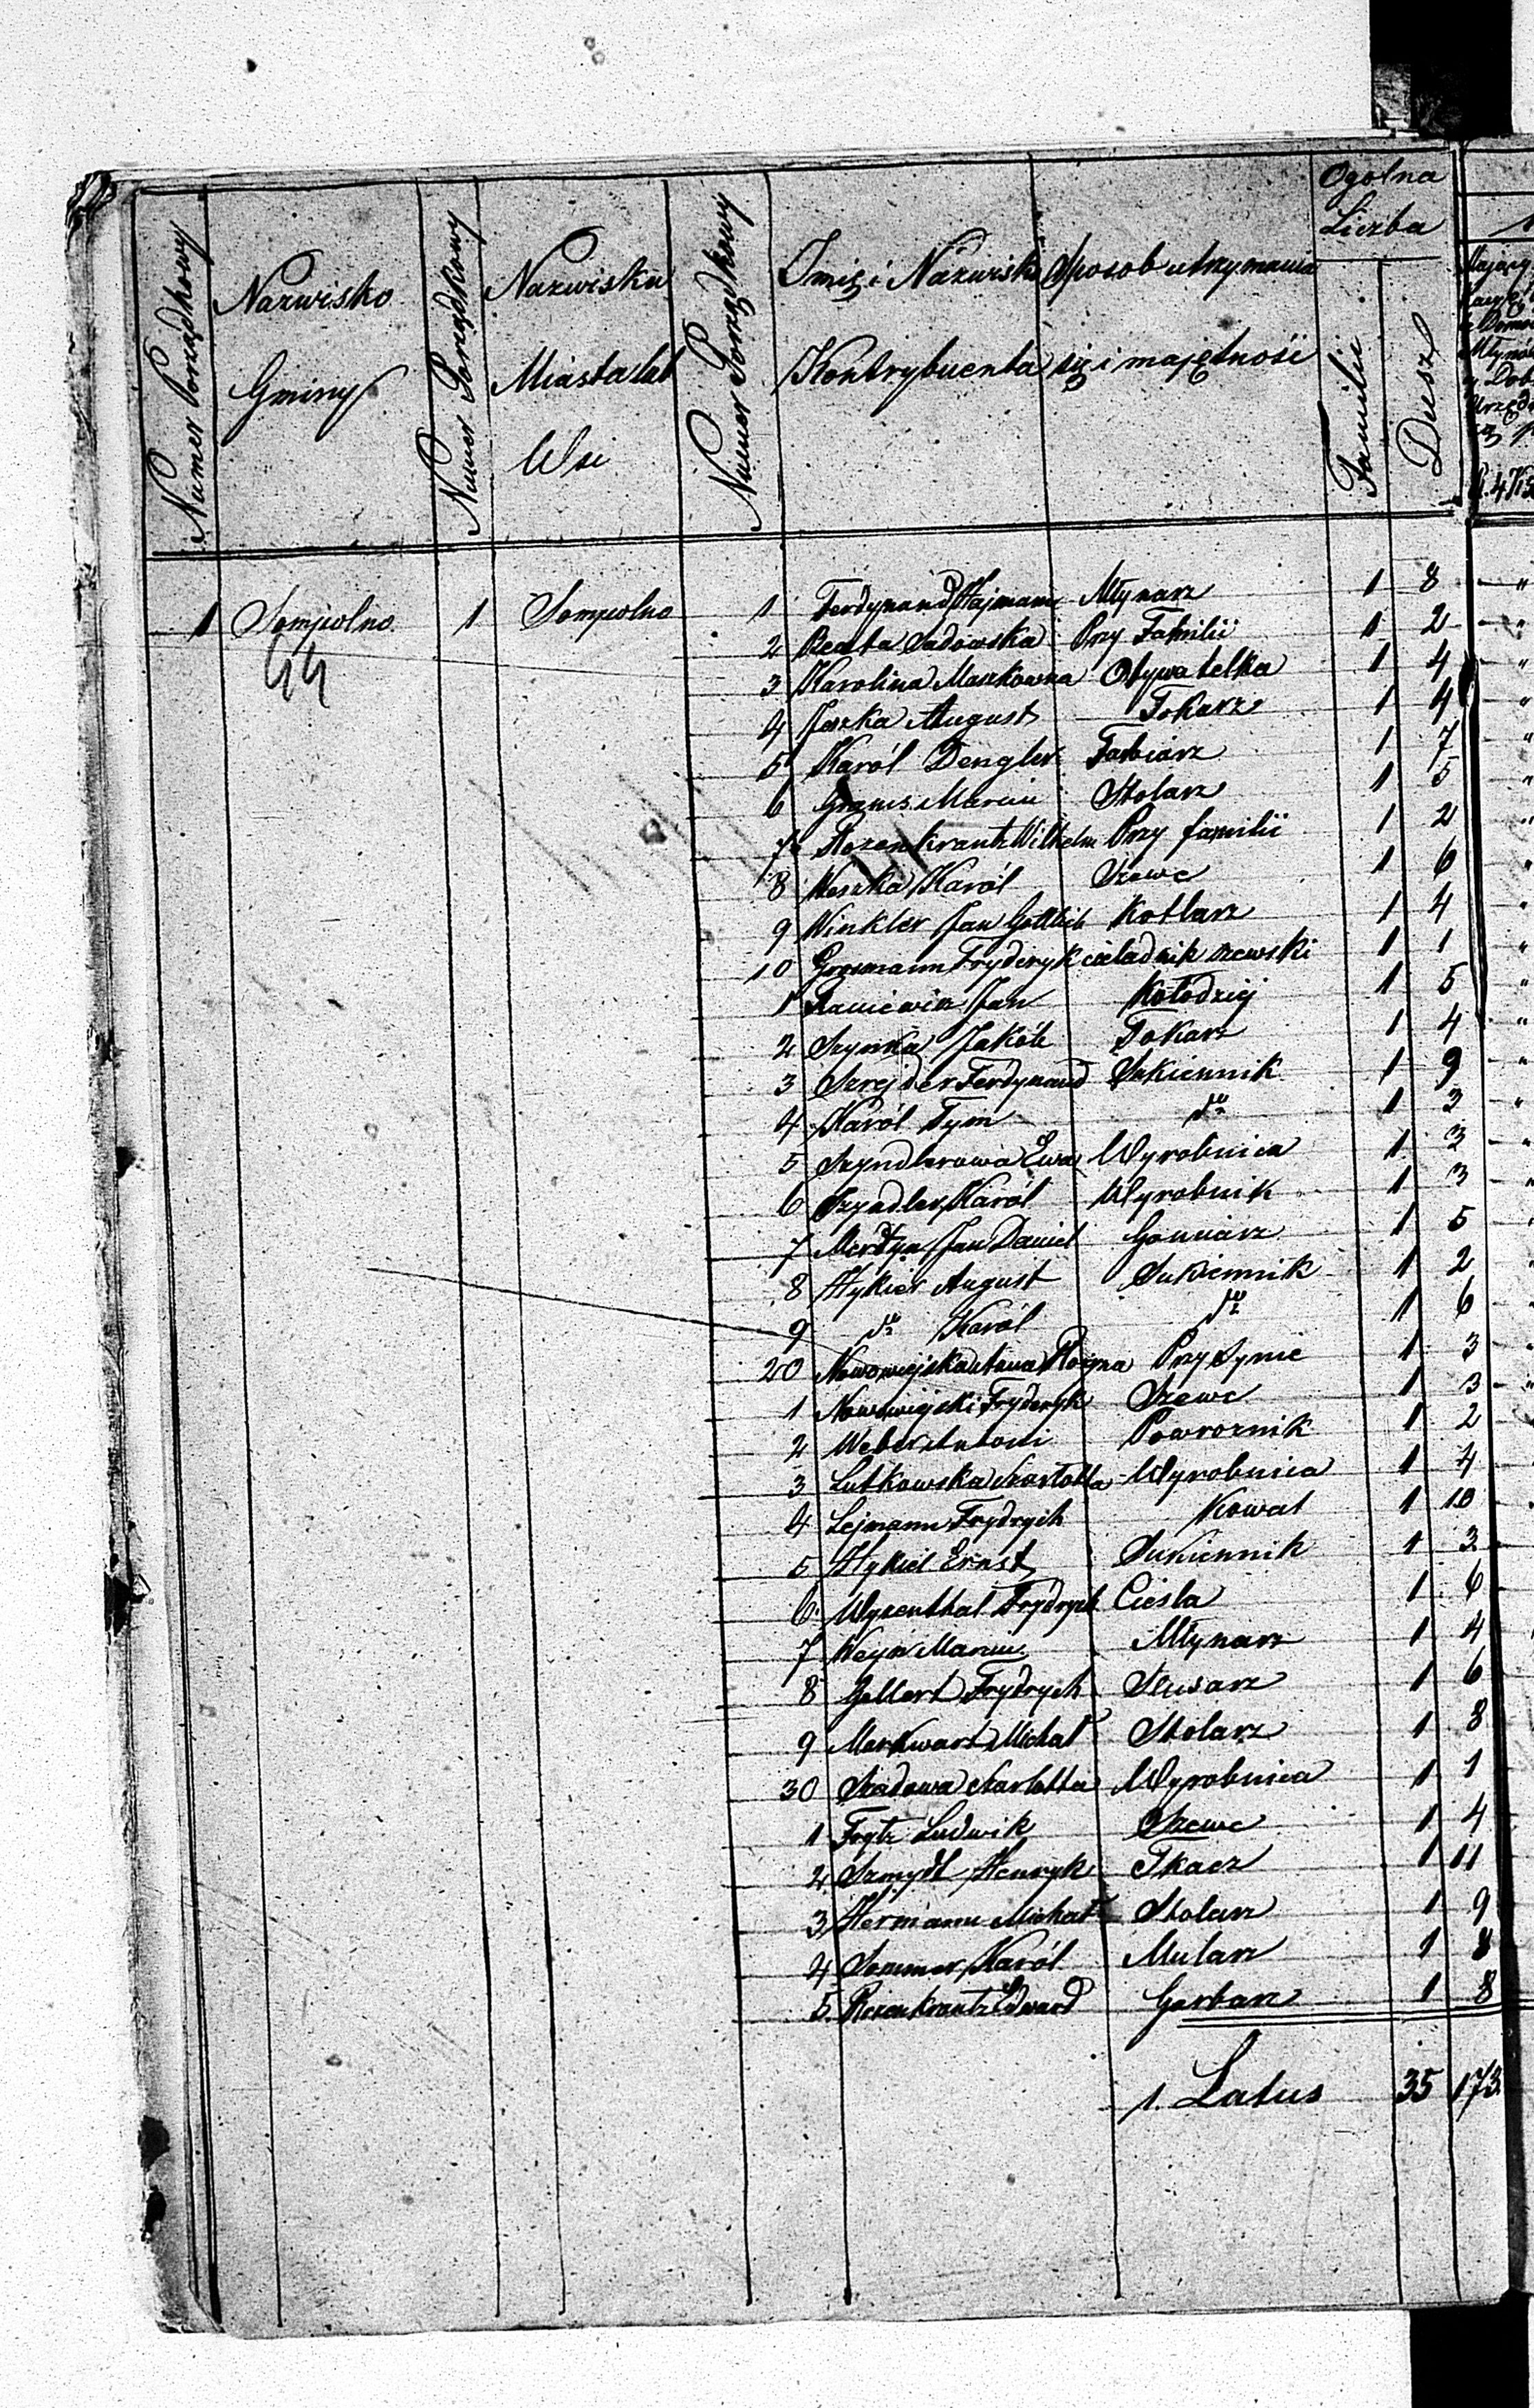 Numer Porządkowy
Nazwisko Gminy
Numer Porządkowy
Nazwisku Miasta lub Wsi
Numer Porządkowy
Imię i Nazwisko Kontrybuenta
Sposob utrzymania się i majętności
Ogolna Liczba
Familii
Dusz
1 Sompolno 1 Sompolno 1 Ferdynand Hajmann Młynarz 1 8
44
2 Beata Sadowska Przy Familii 1 2
3 Karolina Maszkowna Obywatelka 1 4
4 Jeszka August Tokarz 1 4
5 Karól Dengler Farbiarz 1 7
6 Marcin Stolarz 1 5
7 Rozenkrantz Wilhelm Przy familii 1 2
8 Karól Szewc 1 6
9 Winkler Jan Gottlieb Kotlarz 1 4
10 Fryderyk czeladnik szewski 1 1
1 Jan Kołodziej 1 5
2 Szymka Jakób Tokarz 1 4
3 Szrejder Ferdynand Sukiennik 1 9
4 Karól Tym do 1 3
5 Szyndlerowa Ewa Wyrobnica 1 3
6 Szyndler Karól Wyrobnik 1 3
7 Mertyn Jan Daniel Gonciarz 1 5
8 Hykiel August Sukiennik 1 2
9 do Karól do 1 6
20 Nowowiejska Anna Rozyna Przy Synie 1 3
1 Nowowiejski Fryderyk Szewc 1 3
2 Weber Antoni Powroznik 1 2
3 Lutkowska Szarlotta Wyrobnica 1 4
4 Lejmann Frydrych Kowal 1 10
5 Hykiel Ernst Sukiennik 1 3
6 Wyzenthal Frydrych Ciesla 1 6
7 Weyss Marcin Młynarz 1 4
8 Gellert Frydrych Slusarz 1 6
9 Markwart Michał Stolarz 1 8
30 Szadowa Szarlotta Wyrobnica 1 1
1 Frytz Ludwik Szewc 1 4
2 Szmydt Henryk Tkacz 1 11
3 Hermann Michał Stolarz 1 9
4 Sommer Karól Mularz 1 8
5 Rozenkrantz Edward Garbarz 1 8
1. Latus 35 173